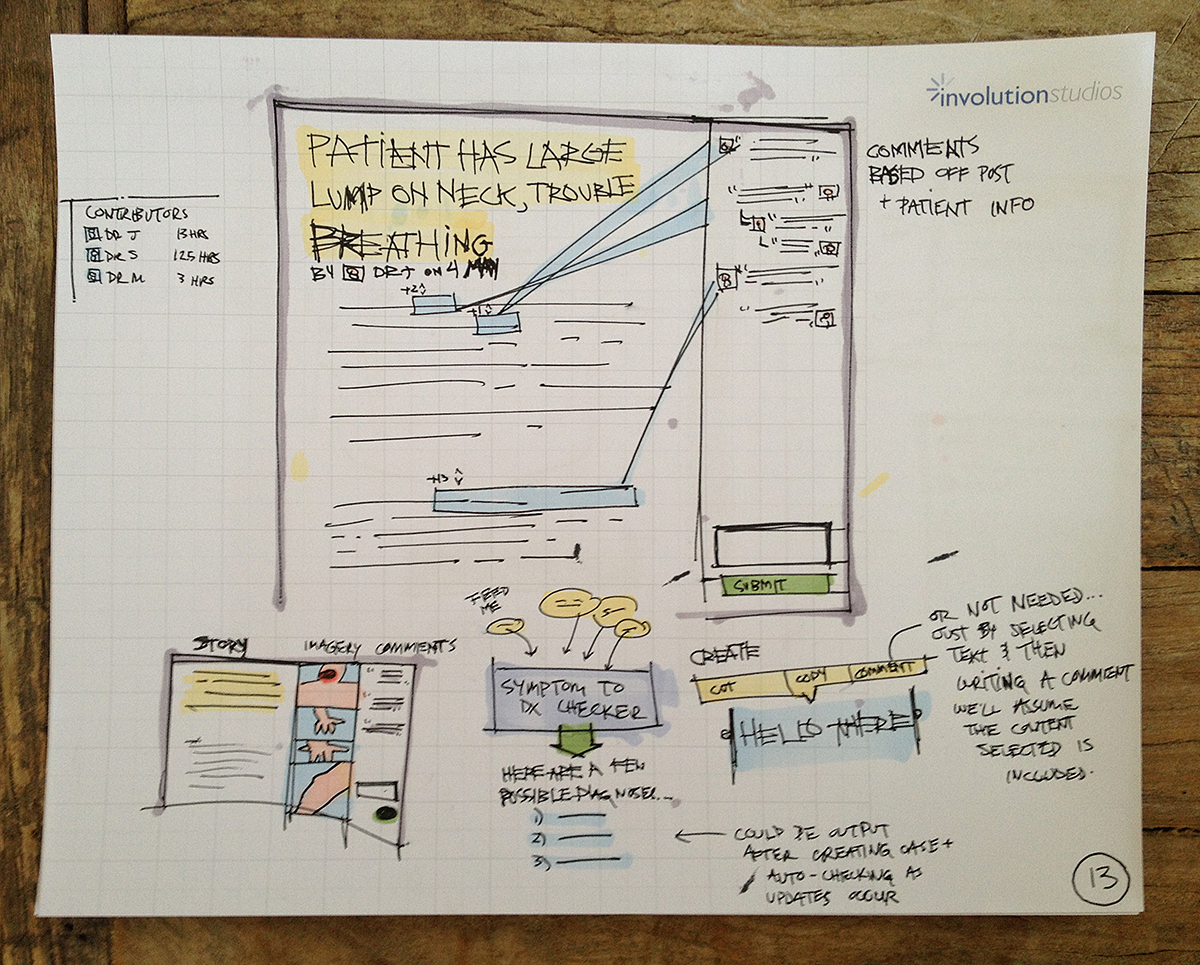 involutionstudios
PATIENT HAS LARGE
LUMP ON NECK, TROUBLE
BREATHING
BY DR J ON 4 MAY
CONTRIBUTORS
DR J 13 HRS
DR S 125 HRS
DR M 3 HRS
COMMENTS
BASED OFF POST
+ PATIENT INFO
+2
+1
SUBMIT
STORY
IMAGERY
COMMENTS
FEED
ME
SYMPTOM TO
DX CHECKER
HERE ARE A FEW
POSSIBLE DIAGNOSES...
1)
2)
3)
COULD BE OUTPUT
AFTER CREATING CASE +
AUTO-CHECKING AS
UPDATES OCCUR
CREATE
CUT COPY COMMENT
HELLO THERE
OR NOT NEEDED...
JUST BY SELECTING
TEXT & THEN
WRITING A COMMENT
WE'LL ASSUME
THE CONTENT
SELECTED IS
INCLUDED.
13